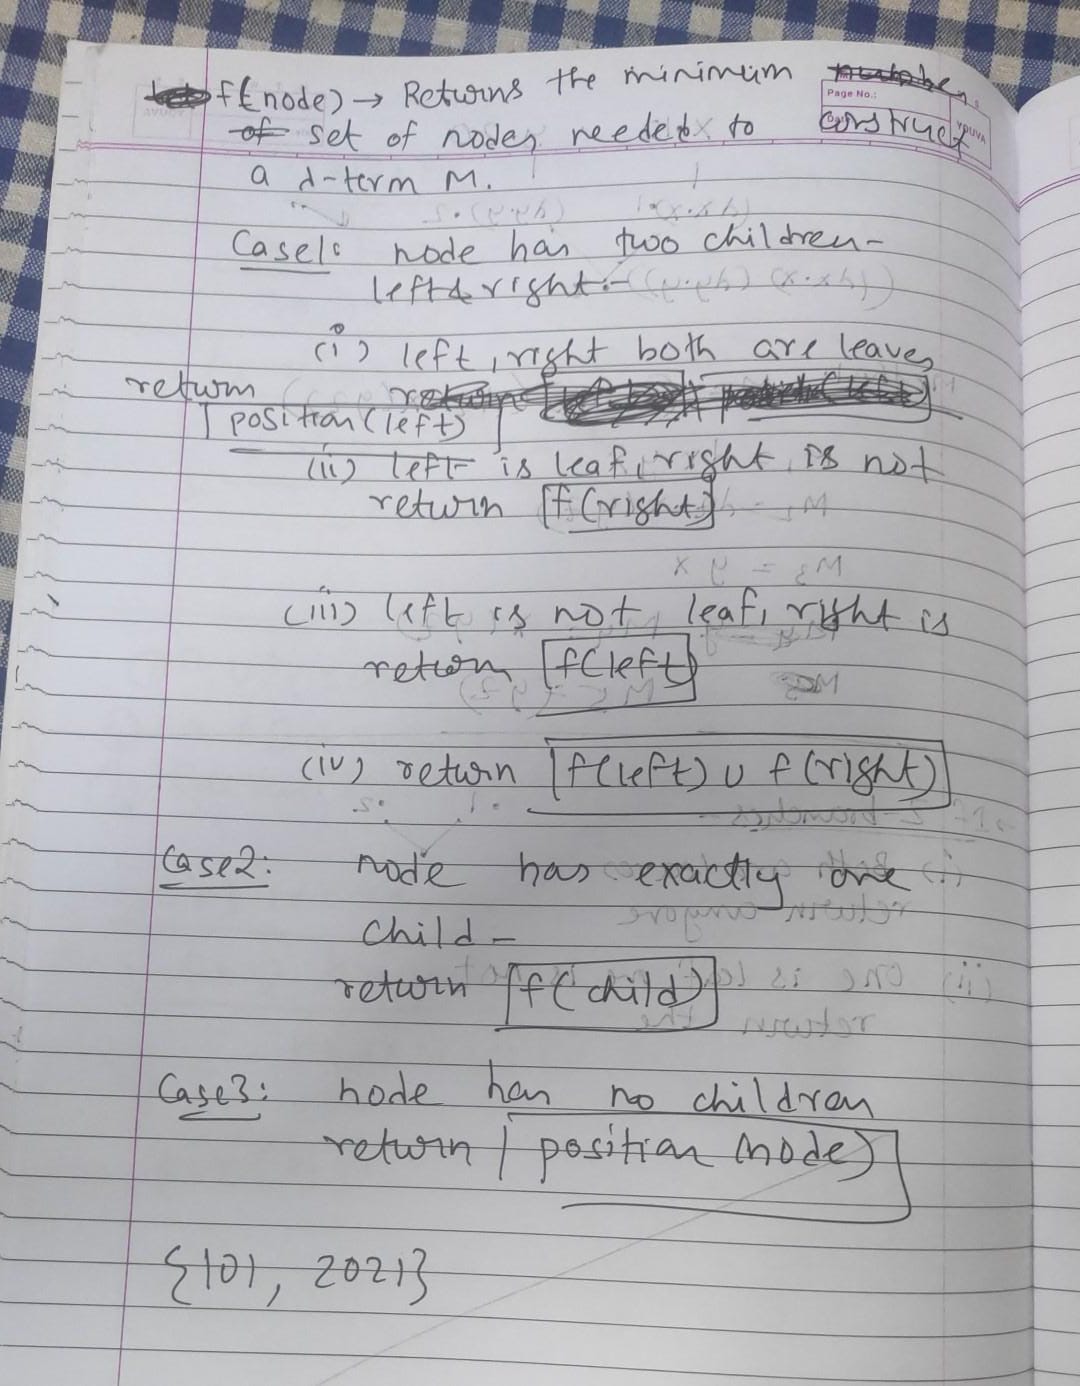 f(node) → Returns the minimum number
Page No.:
of set of nodes needed to construct
YOUVA
a λ-term M.
Case1: node has two children-
left & right:-
(i) left, right both are leaves
return return
position(left)
(ii) left is leaf, right is not
return f(right)
(iii) left is not leaf, right is
return f(left)
(iv) return f(left) ∪ f(right)
Case2: node has exactly one
child -
return f(child)
Case3: node has no children
return position node)
{101, 2021}